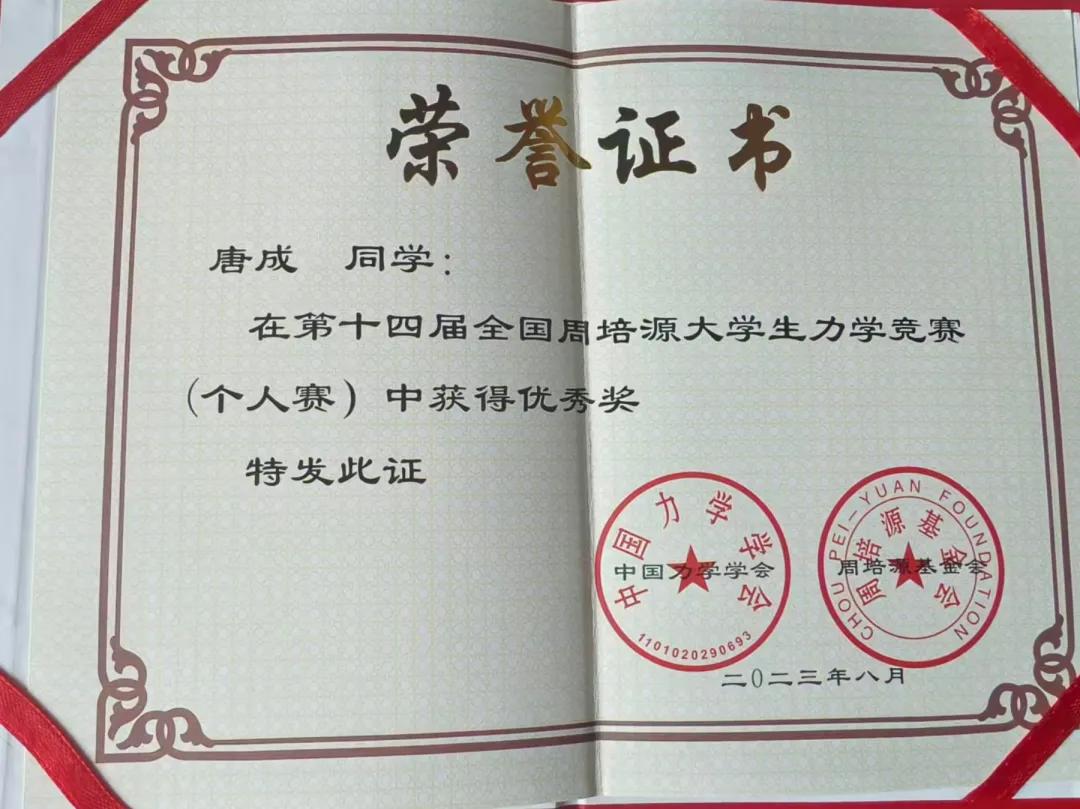 荣誉证书
唐成 同学：
在第十四届全国周培源大学生力学竞赛
（个人赛）中获得优秀奖
特发此证
中国力学学会
中国力学学会
1101020290693
CHOU PEI-YUAN FOUNDATION
周培源基金会
周培源基金会
二〇二三年八月